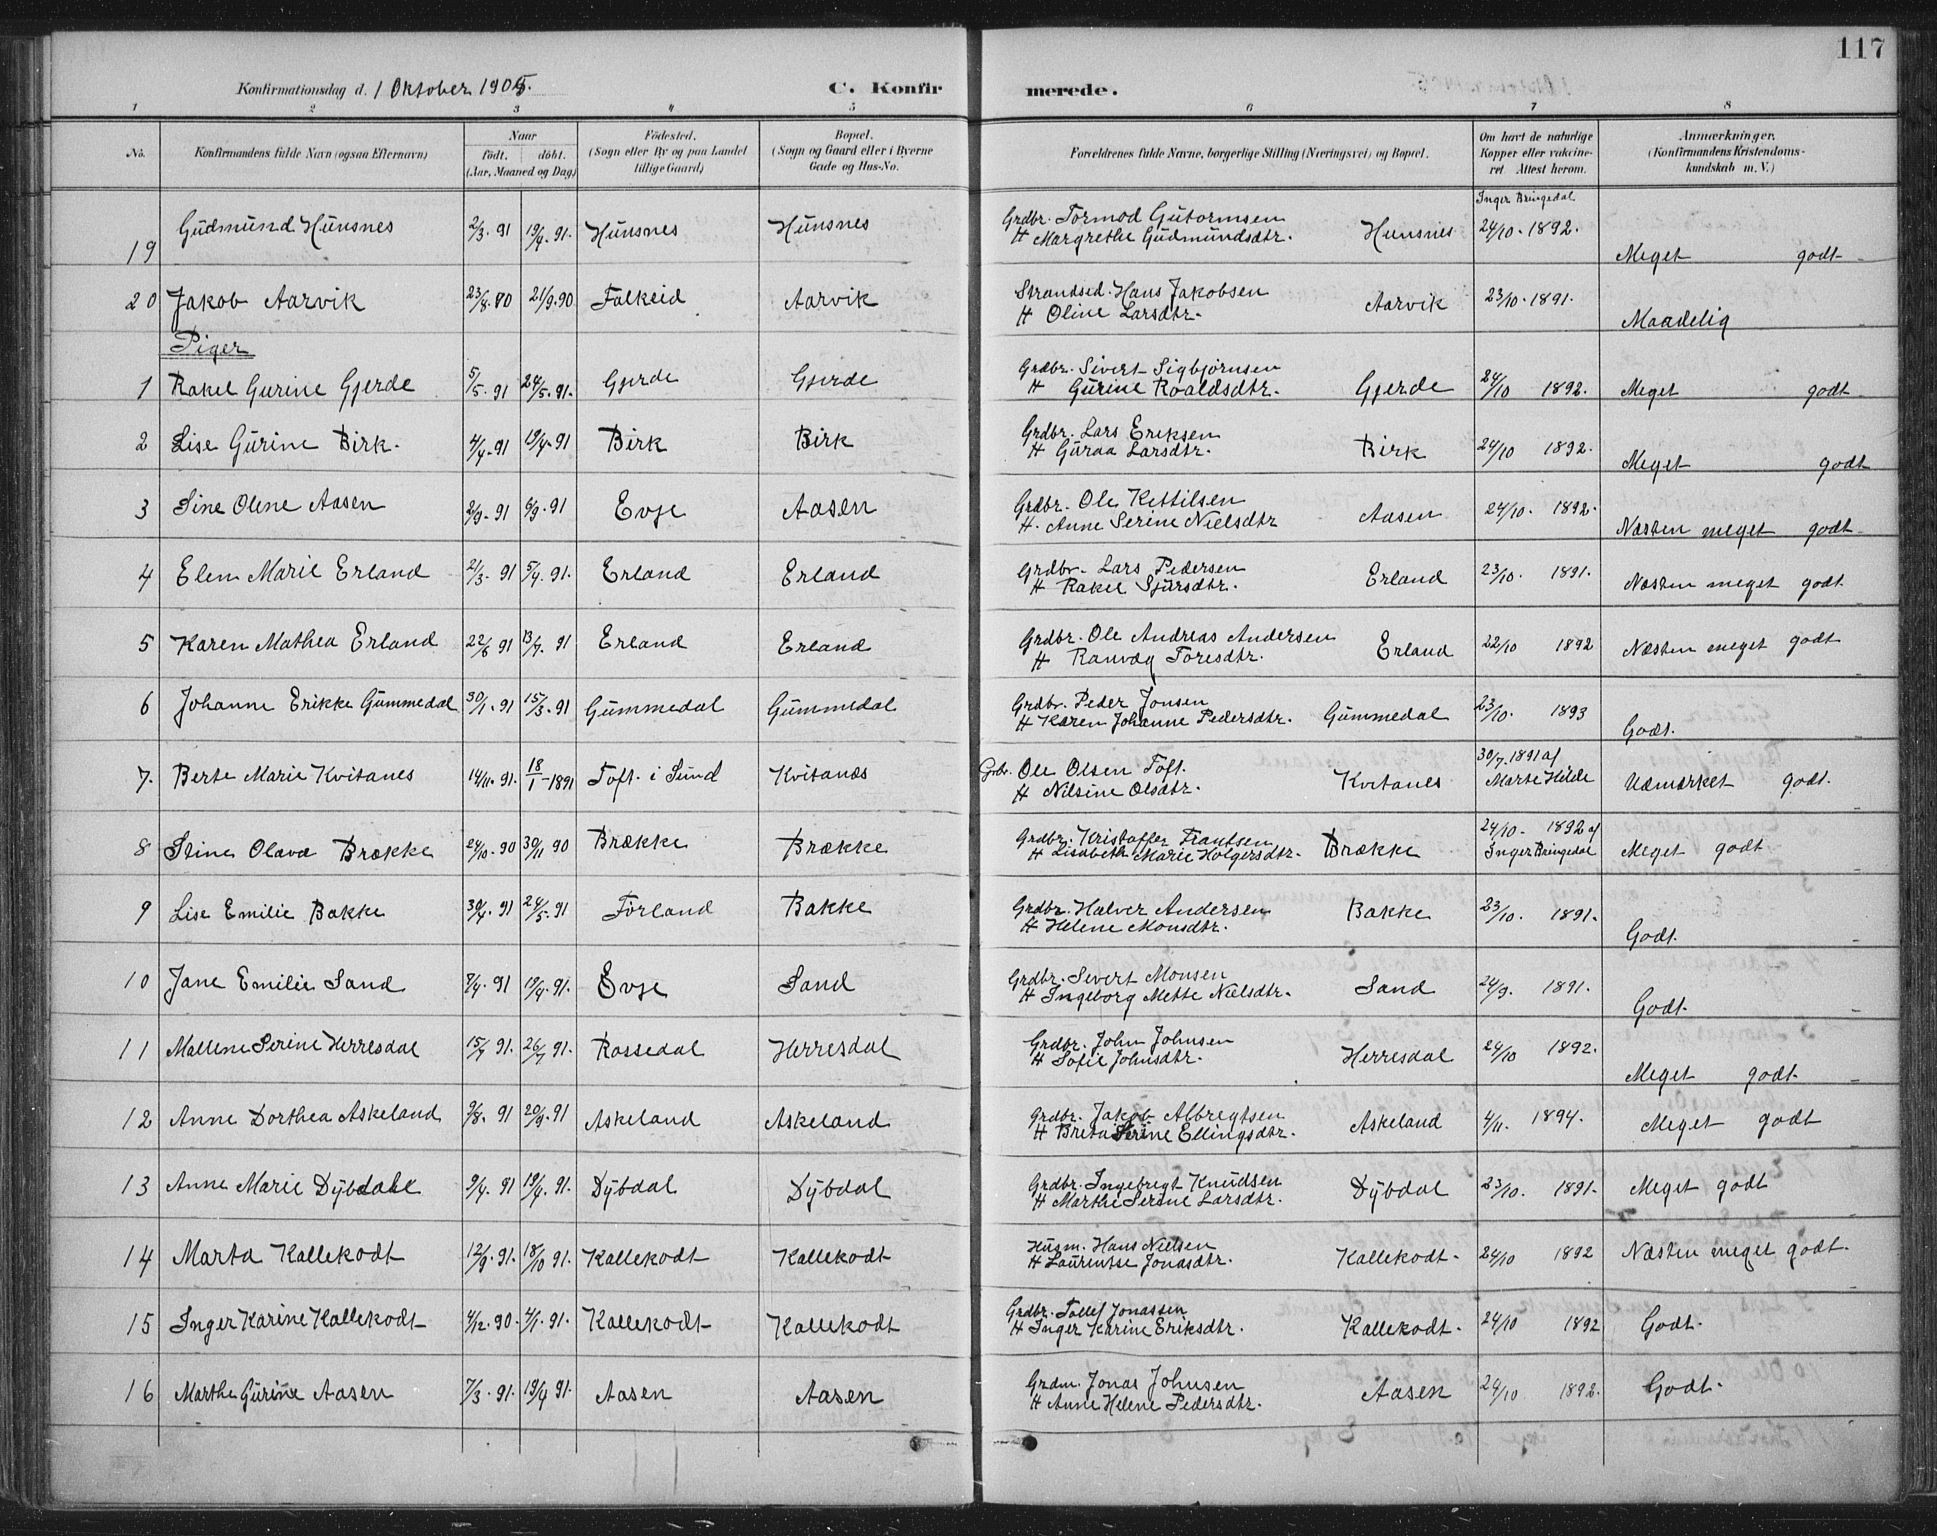 117
Konfirmationsdag d. 1 Oktober 1905. C. Konfirmerede.
1 2 3 4 5 6 7 8
No. Konfirmandens fulde Navn (ogsaa Efternavn) Naar født. døbt. (Aar, Maaned og Dag) Fødested. (Sogn eller By og paa Landet tillige Gaard) Bopæl. (Sogn og Gaard eller i Byerne Gade og Hus-No. Forældrenes fulde Navne, borgerlige Stilling (Næringsvei) og Bopæl. Om havt de naturlige Kopper eller vakcineret. Attest herom. Anmærkninger. (Konfirmandens Kristendomskundskab m. V.)
Inger Bringedal
19 Gudmund Hunsnes 2/3. 91 19/4. 91. Hunsnes Hunsnes Grdbr. Tormod Gutormsen Hunsnes 24/10. 1892. Meget godt
H Margrethe Gudmundsdtr.
20 Jakob Aarvik 23/8. 90 21/9. 90 Falkeid Aarvik Strandsid. Hans Jakobsen Aarvik 23/10. 1891. Maadelig
H Oline Larsdtr.
Piger
1 Rakel Gurine Gjerde 5/5. 91 24/5. 91. Gjerde Gjerde Grdbr. Sivert Sigbjørnsen Gjerde 24/10 1892. Meget godt
H Gurine Roaldsdtr.
2 Lise Gurine Birk. 4/4. 91 19/4. 91 Birk Birk Grdbr. Lars Eriksen Birk 24/10 1892. Meget godt
H Guraa Larsdtr.
3 Sine Olene Aasen 2/9. 91 6/9. 91 Evje Aasen Grdbr. Ole Kettilsen Aasen 24/10. 1892. Næsten meget godt
H. Anne Serine Nielsdtr
4 Elen Marie Erland 21/3. 91 5/4. 91. Erland Erland Grdbr. Lars Pedersen Erland 23/10. 1891. Næsten meget godt.
H Rakel Sjursdtr.
5 Karen Mathea Erland 22/6 91 13/7. 91 Erland Erland Grdbr. Ole Andreas Andersen Erland 22/10 1892 Næsten meget godt
H Ranveg Toresdtr.
6 Johanne Erikke Gummedal 30/1. 91 15/3. 91 Gummedal Gummedal Grdbr. Peder Jonsen Gummedal 23/10. 1893 Godt.
H Karen Johanne Pedersdtr.
7. Berte Marie Kvitanes 14/11. 91. 18/1 - 1891 Toft i Sund Kvitanæs Grbr. Ole Olsen Toft. Kvitanes 30/7. 1891 af Marte Hilde Udmærket godt.
H Nilsine Olsdtr.
8 Stine Olava Brække 24/10. 90 30/11 90 Brække Brække Grdbr. Kristoffer Frantsen Brække 24/10. 1892 af Inger Bringedal Meget godt
H Lisabeth Marie Holgersdtr.
9 Lise Emilie Bakke 30/4. 91 24/5. 91 Førland Bakke Grdbr. Halver Andersen Bakke 23/10. 1891. Godt.
H Helene Monsdtr.
10 Jane Emilie Sand 7/4. 91 19/4. 91. Evje Sand Grdbr. Sivert Monsen Sand 24/9. 1891. Godt.
H Ingeborg Mette Nielsdtr.
11 Mallene Serine Herresdal 15/7 91. 26/7 91. Rossedal Herresdal Grdbr. John Johnsen Herresdal 24/10 1892. Meget godt.
H Sofie Johnsdtr.
12 Anne Dorthea Askeland 9/8. 91 20/9. 91 Askeland Askeland Grdbr. Jakob Albregtsen Askeland 4/11. 1894. Meget godt
H Breta Serine Ellingsdtr.
13 Anne Marie Dybdahl 9/4. 91 19/4. 91. Dybdal Dybdal Grdbr. Ingebregt Knudsen Dybdal 23/10. 1891. Meget godt
H Marthe Serine Larsdtr.
14 Marta Kallekodt 12/9. 91. 18/10 91. Kallekodt Kallekodt Husm. Hans Nielsen Kallekodt. 24/10 1892 Næsten meget godt.
H Laurentse Jonasdtr.
15 Inger Karine Kallekodt 4/12. 90. 4/1. 91. Kallekodt Kallekodt Grdbr. Tollef Jonassen Kallekodt. 24/10 1892 Godt.
H Inger Karine Eriksdtr.
16 Marthe Gurine Aasen 7/3. 91. 19/4 91. Aasen Aasen Grdm. Jonas Johnsen Aasen 24/10. 1892. Godt.
H Anne Helene Pedersdtr.